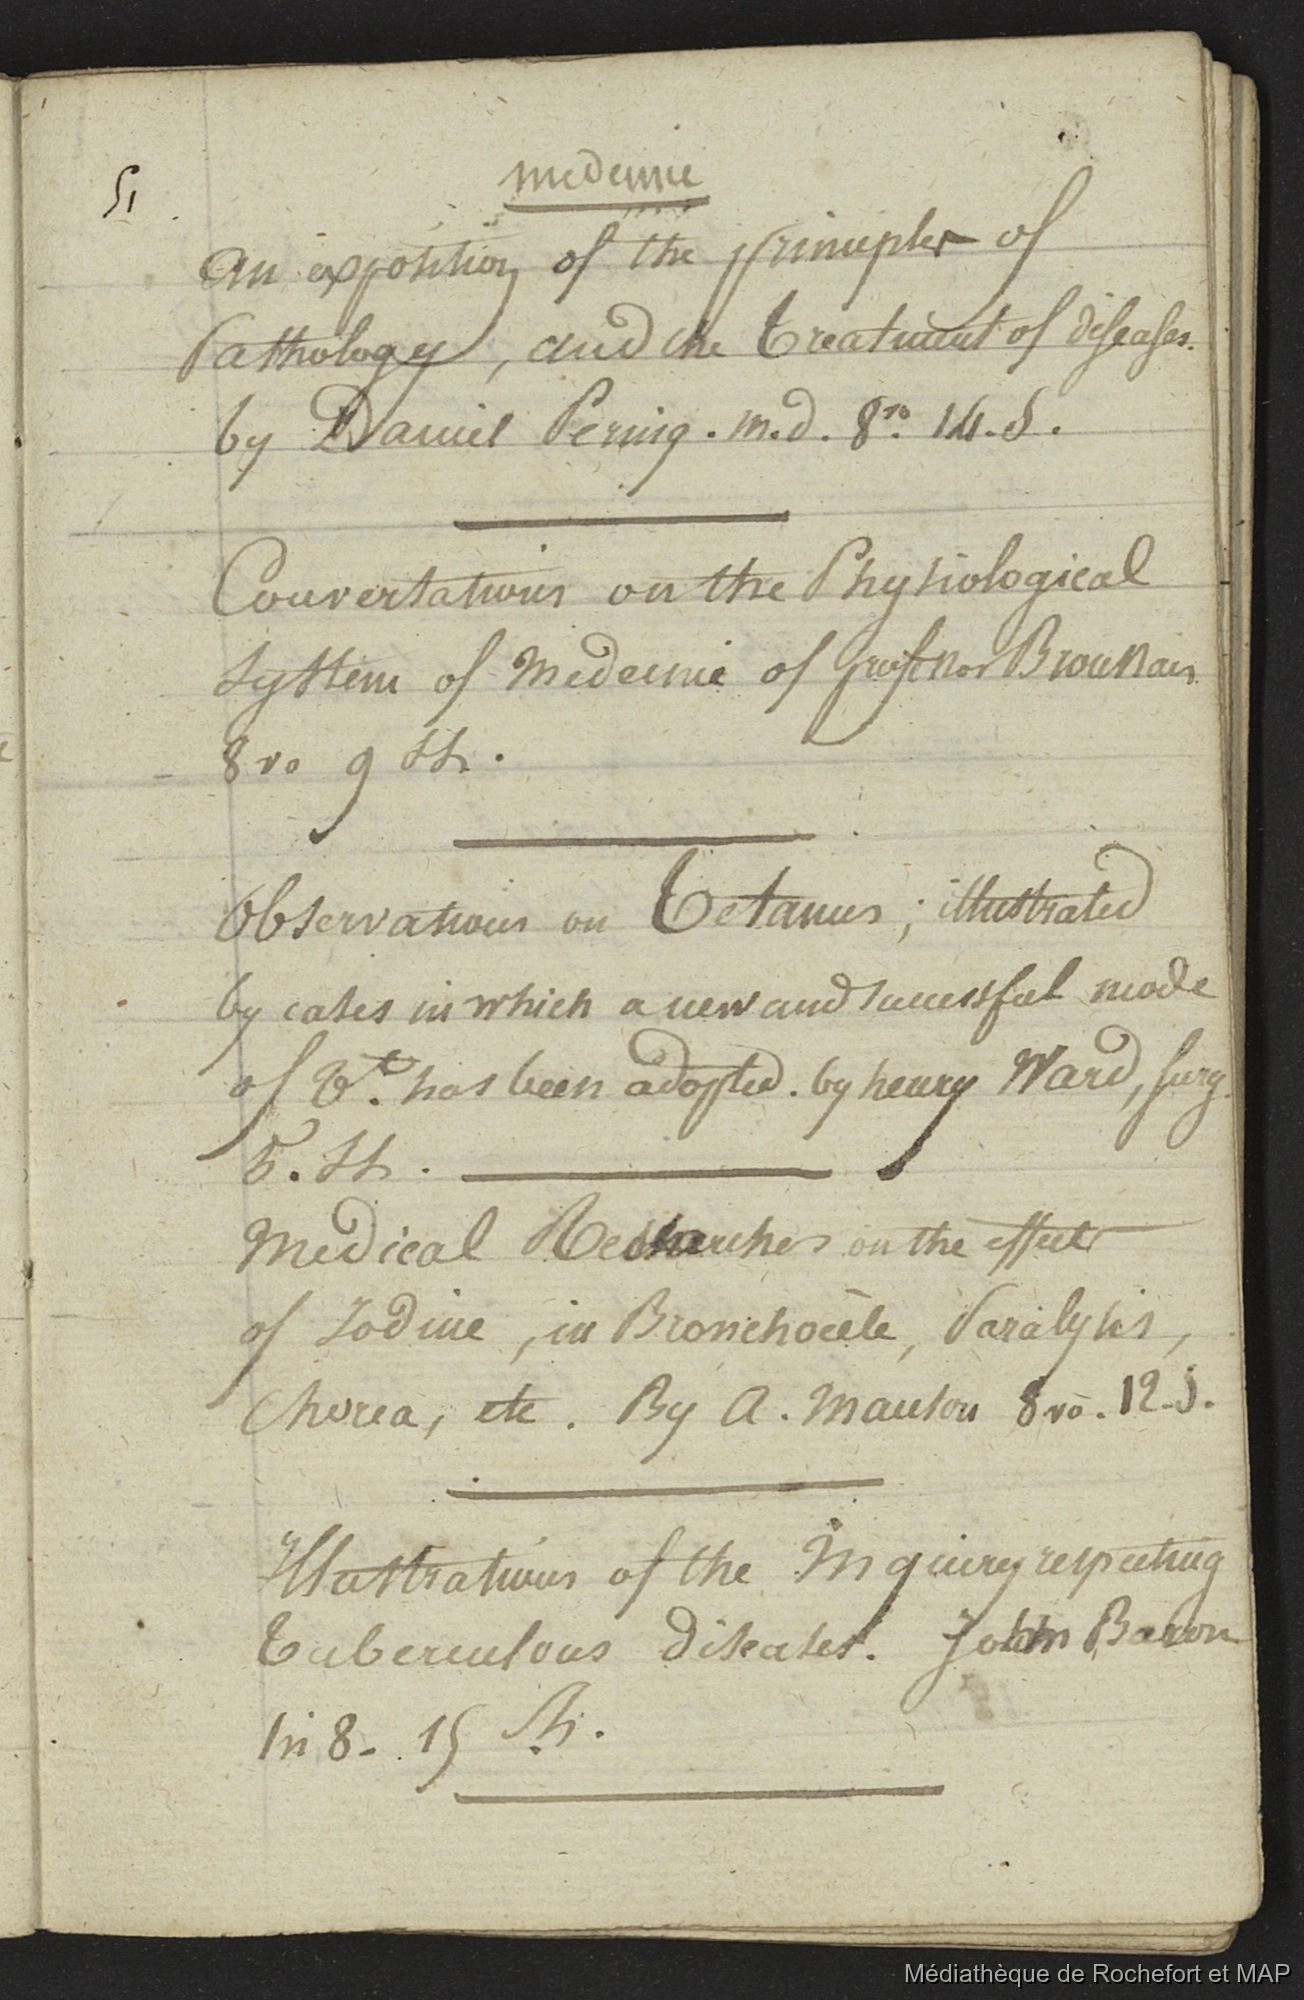 51.
medecine
an exposition of the principles of
Pathology, and the treatment of diseases.
by Daniel Pering. m.d. 8vo. 14. S.
Conversations on the Physiological
System of Medecine of professor Broussais
8vo 9 sh.
Observations on Tetanus; illustrated
by cases in which a new and successful mode
of Tt. has been adopted. by henry Ward, surg.
5. sh.
Medical Researches on the effects
of Iodine, in Bronchocèle, Paralysis,
Chorea, etc. By A. Manson 8vo. 12. S.
Illustrations of the Inquiry respecting
tuberculous diseases. John Baron
In 8- . 15 Sh.
Médiathèque de Rochefort et MAP